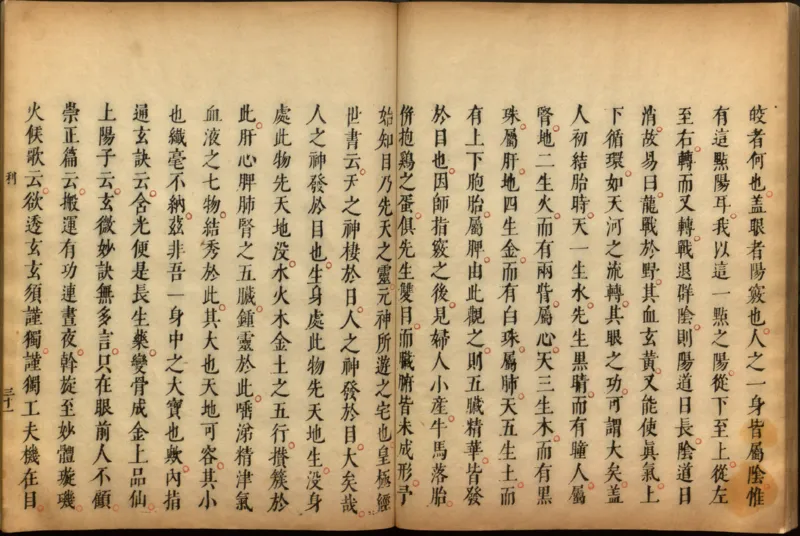 皎者何也蓋眼者陽竅也人之一身皆屬陰惟
有這點陽耳我以這一點之陽從下至上從左
至右轉而又轉戰退群陰則陽道日長陰道日
消故易曰龍戰於野其血玄黃又能使眞氣上
下循環如天河之流轉其眼之功可謂大矣蓋
人初結胎時天一生水先生黑睛而有瞳人屬
腎地二生火而有兩眥屬心天三生木而有黑
珠屬肝地四生金而有白珠屬肺天五生土而
有上下胞胎屬脾由此觀之則五臟精華皆發
於目也因師指竅之後見婦人小產牛馬落胎
倂抱鷄之蛋俱先生雙目而臟腑皆未成形予
始知目乃先天之靈元神所遊之宅也皇極經
世書云天之神棲於日人之神發於目大矣哉
人之神發於目也生身處此物先天地生没身
處此物先天地没水火木金土之五行攢簇於
此肝心脾肺腎之五臟鍾靈於此唾涕精津氣
血液之七物結秀於此其大也天地可容其小
也纖毫不納玆非吾一身中之大寶也歟內指
通玄訣云含光便是長生藥變骨成金上品仙
上陽子云玄微妙訣無多言只在眼前人不顧
崇正篇云搬運有功連晝夜斡旋至妙體璇璣
火候歌云欲透玄玄須謹獨謹獨工夫機在目
利